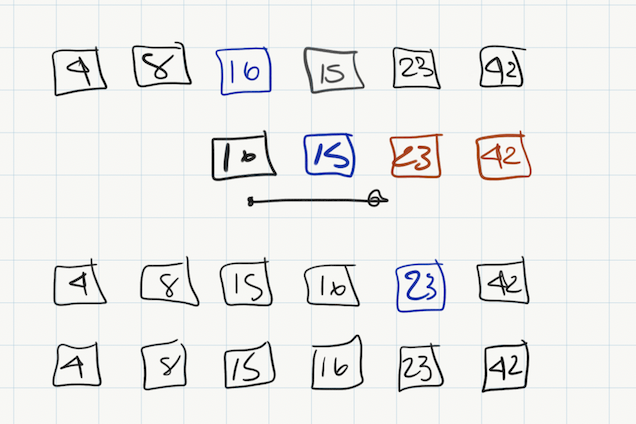 4 8 16 15 23 42
16 15 23 42
4 8 15 16 23 42
4 8 15 16 23 42